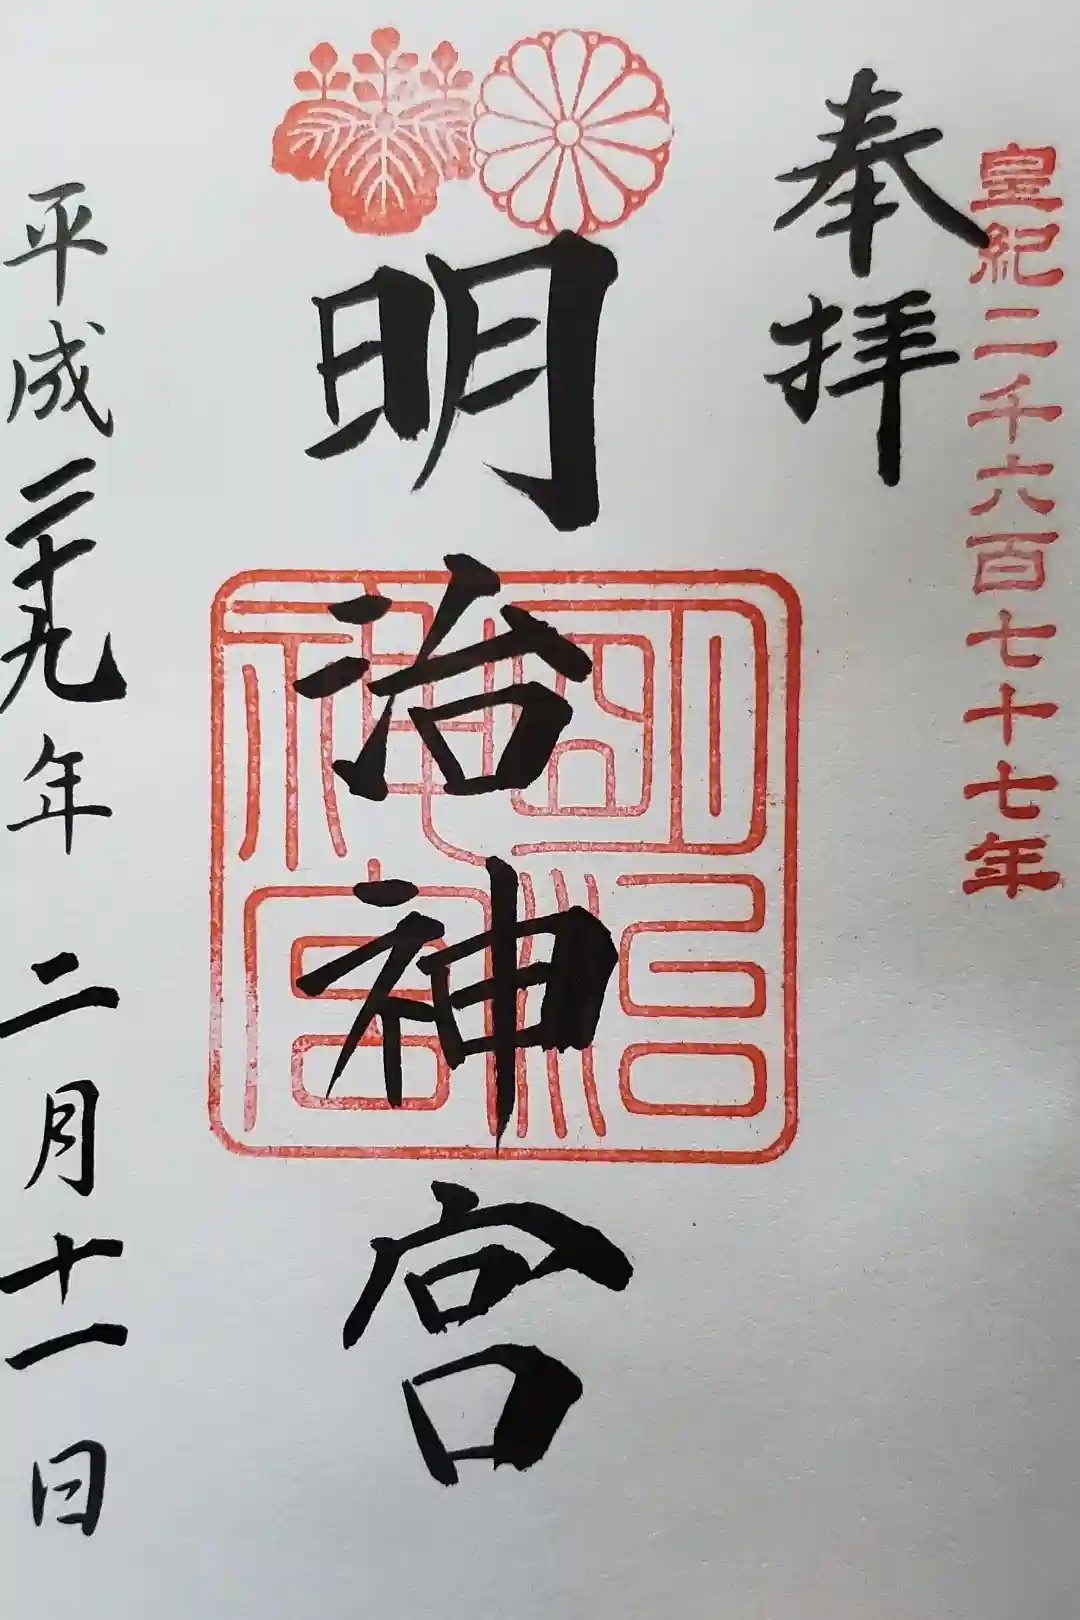 皇紀二千六百七十七年
奉拝
明治神宮
明治神宮
平成二十九年 二月十一日